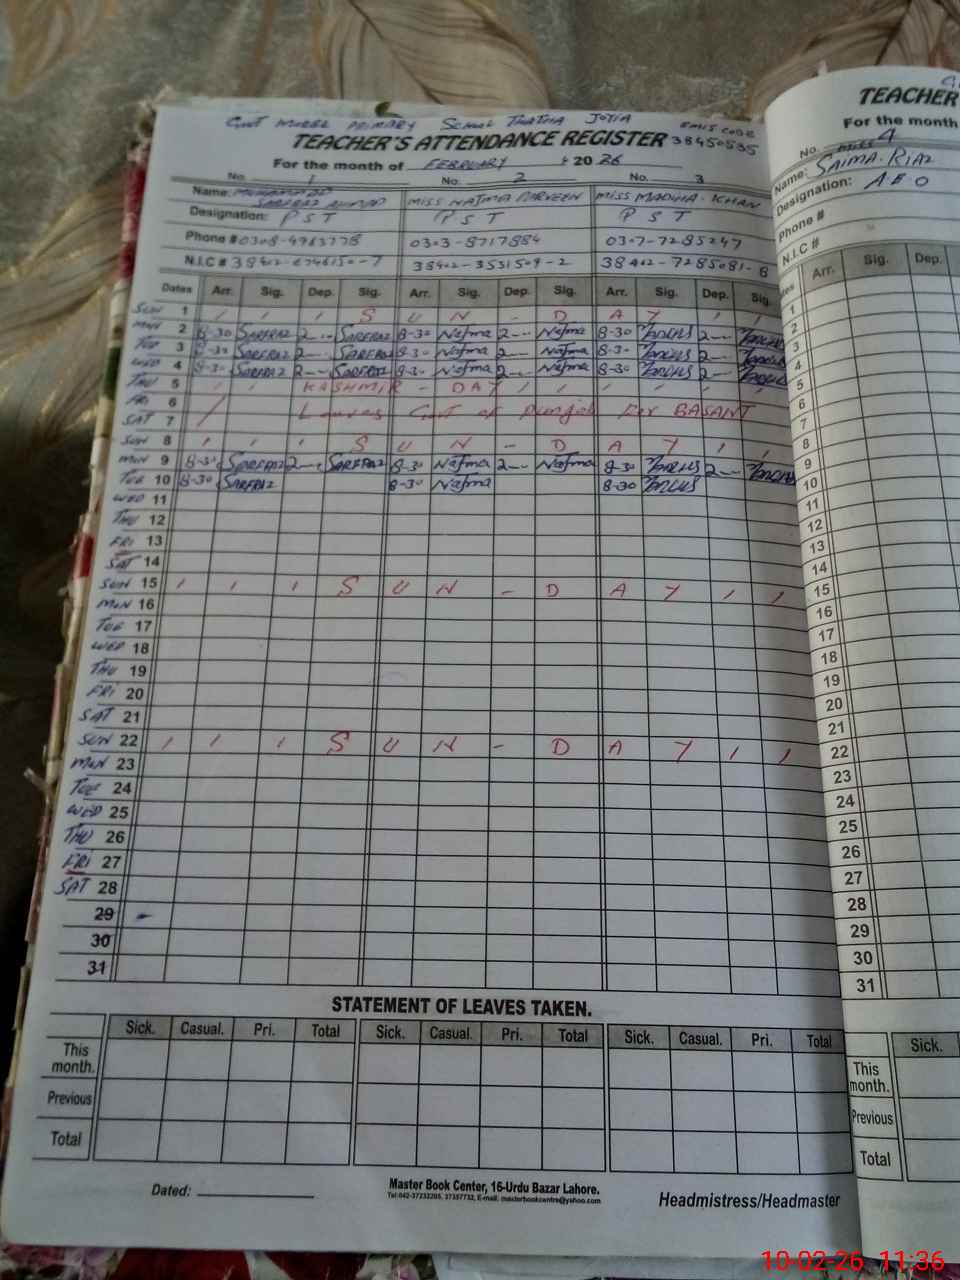 Govt MODEL PRIMARY School THATHA JOTIA EMIS CODE
TEACHER'S ATTENDANCE REGISTER 38450535
For the month of FEBRUARY 2026
No. 1 No. 2 No. 3
Name: MUHAMMAD SARFRAZ AHMAD MISS NAJMA PARVEEN MISS MADIHA KHAN
Designation: PST PST PST
Phone # 0308-4963778 0303-8717884 0307-7285247
N.I.C # 38402-3551509-2 38402-7285081-8
Dates Arr. Sig. Dep. Sig. Arr. Sig. Dep. Sig. Arr. Sig. Dep. Sig.
SUN 1 S U N - D A Y
MON 2 8-30 SARFRAZ 2-- SARFRAZ 8-30 Najma 2-- Najma 8-30 2--
TUE 3 8-30 SARFRAZ 2-- SARFRAZ 8-30 Najma 2-- Najma 8-30 2--
WED 4 8-30 SARFRAZ 2-- SARFRAZ 8-30 Najma 2-- Najma 8-30 2--
THU 5 KASHMIR - DAY
FRI 6
SAT 7 Leaves Govt of Punjab For BASANT
SUN 8 S U N - D A Y
MON 9 8-30 SARFRAZ 2-- SARFRAZ 8-30 Najma 2-- Najma 8-30 2--
TUE 10 8-30 SARFRAZ 8-30 Najma 8-30
WED 11
THU 12
FRI 13
SAT 14
SUN 15 S U N - D A Y
MON 16
TUE 17
WED 18
THU 19
FRI 20
SAT 21
SUN 22 S U N - D A Y
MON 23
TUE 24
WED 25
THU 26
FRI 27
SAT 28
29
30
31
STATEMENT OF LEAVES TAKEN.
Sick. Casual. Pri. Total Sick. Casual. Pri. Total Sick. Casual. Pri. Total
This month.
Previous
Total
Dated:
Master Book Center, 16-Urdu Bazar Lahore.
Tel:042-37232205, 37357732, E-mail. masterbookcentre@yahoo.com
Headmistress/Headmaster
TEACHER
For the month
No. 4
Name: MISS SAIMA RIAZ
Designation: AEO
Phone #
N.I.C #
Arr. Sig. Dep.
1
2
3
4
5
6
7
8
9
10
11
12
13
14
15
16
17
18
19
20
21
22
23
24
25
26
27
28
29
30
31
Sick.
This month.
Previous
Total
10-02-26 11:36